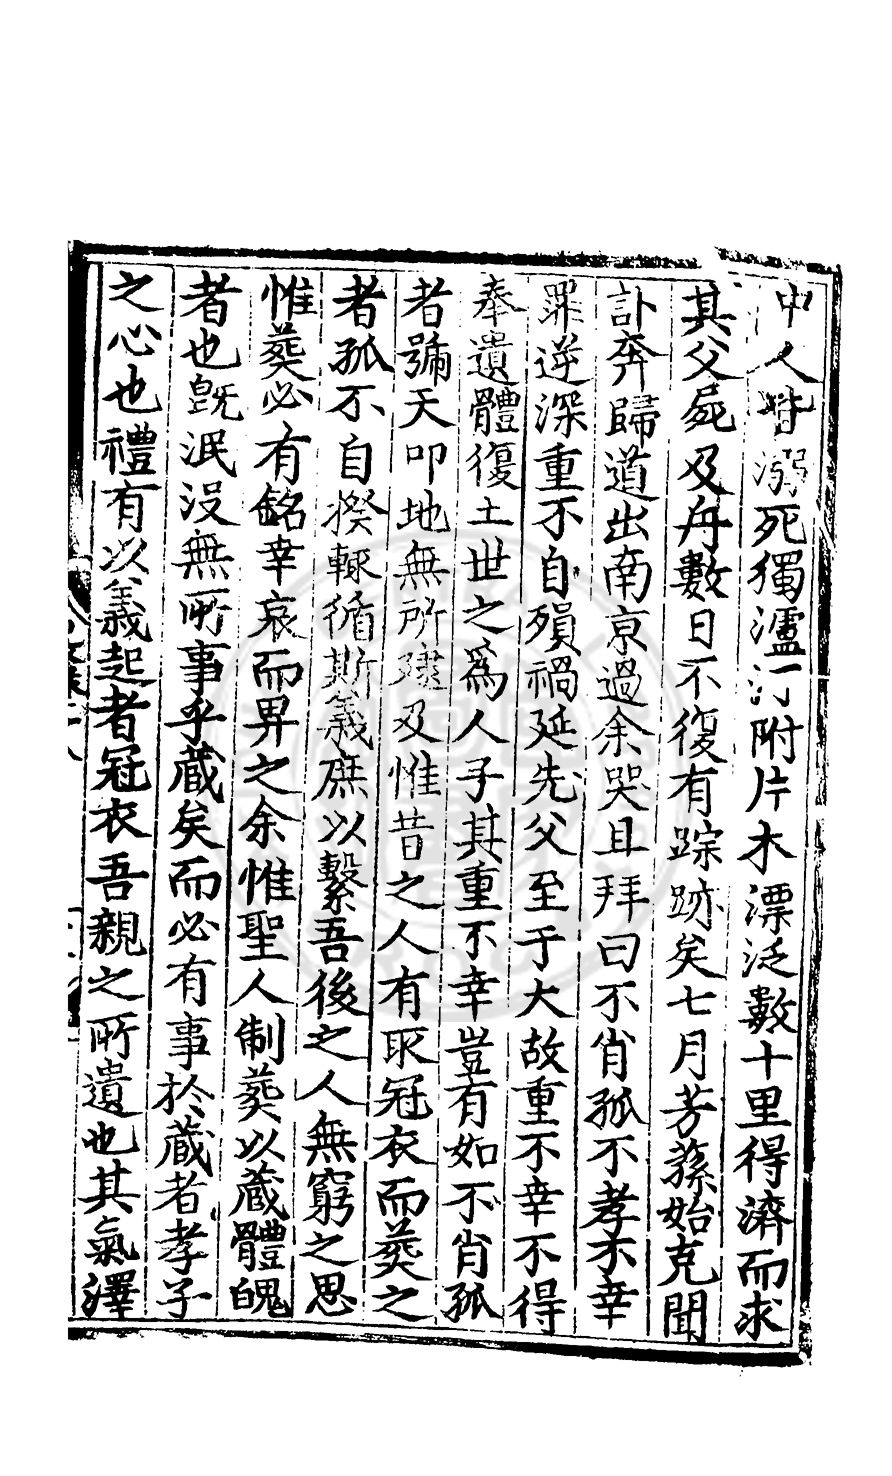 中人皆溺死獨瀘汀附片木漂泛數十里得濟而求
其父屍及舟數日不復有踪跡矣七月芳蓀始克聞
訃奔歸道出南京過余哭且拜曰不肖孤不孝不幸
罪逆深重不自殞禍延先父至于大故重不幸不得
奉遺體復土世之為人子其重不幸豈有如不肖孤
者號天叩地無所逮及惟昔之人有取冠衣而葬之
者孤不自揆輙循斯義庶以繫吾後之人無窮之思
惟葬必有銘幸哀而畀之余惟聖人制葬以藏體魄
者也旣泯沒無所事乎藏矣而必有事於藏者孝子
之心也禮有以義起者冠衣吾親之所遺也其氣澤